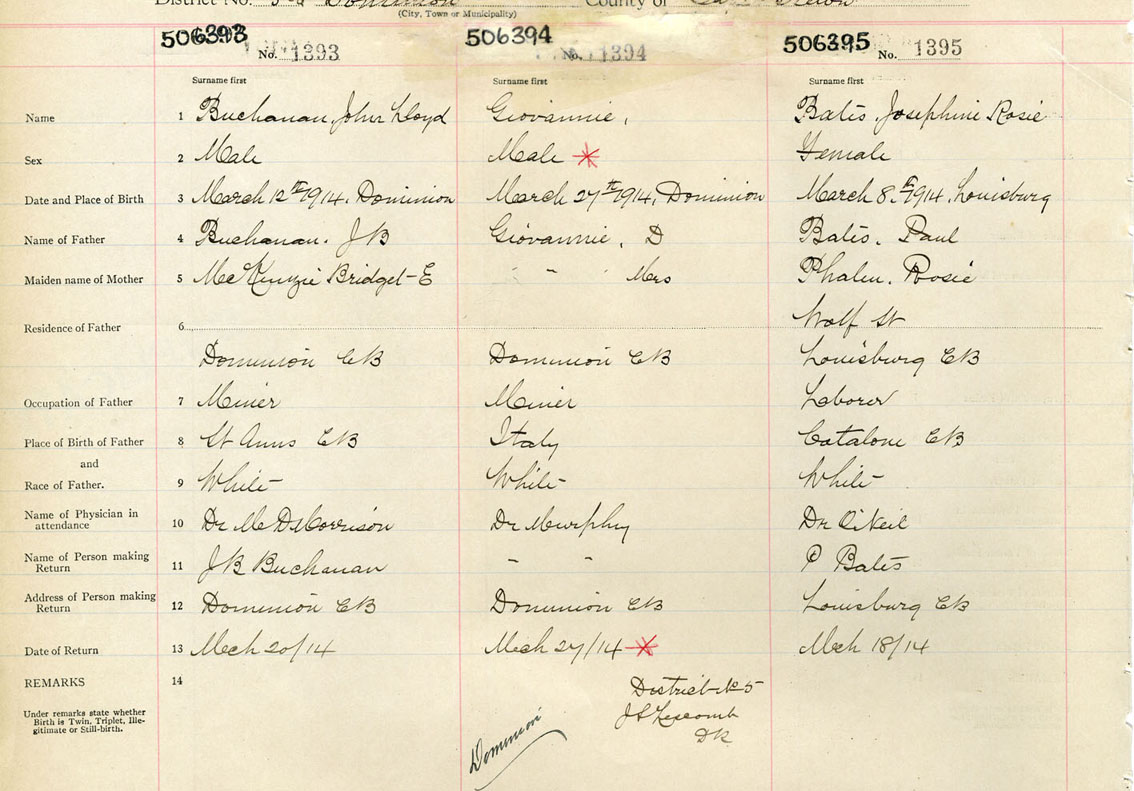 District No. Dominion County of Cape Breton
(City, Town or Municipality)
506393 506394 506395
No. 1393 No. 1394 No. 1395
Surname first Surname first Surname first
Name 1 Buchanan, John Lloyd Giovannie, Bates, Josephine Rosie
Sex 2 Male Male Female
Date and Place of Birth 3 March 12th 1914, Dominion March 27th 1914, Dominion March 8th 1914, Louisburg
Name of Father 4 Buchanan. J B Giovannie, D Bates. Paul
Maiden name of Mother 5 McKenzie Bridget E " " Mrs Phalen. Rosie
Wolf St
Residence of Father 6
Dominion CB Dominion CB Louisburg CB
Occupation of Father 7 Miner Miner Laborer
Place of Birth of Father 8 St Anns CB Italy Catalone CB
and
Race of Father. 9 White White White
Name of Physician in attendance 10 Dr M D Morrison Dr Murphy Dr
Name of Person making Return 11 J B Buchanan " " P Bates
Address of Person making Return 12 Dominion CB Dominion CB Louisburg CB
Date of Return 13 Mch 20/14 Mch 27/14 Mch 18/14
REMARKS 14
District No 5
Under remarks state whether
Birth is Twin, Triplet, Ille-
gitimate or Still-birth.
J S
DR
Dominion